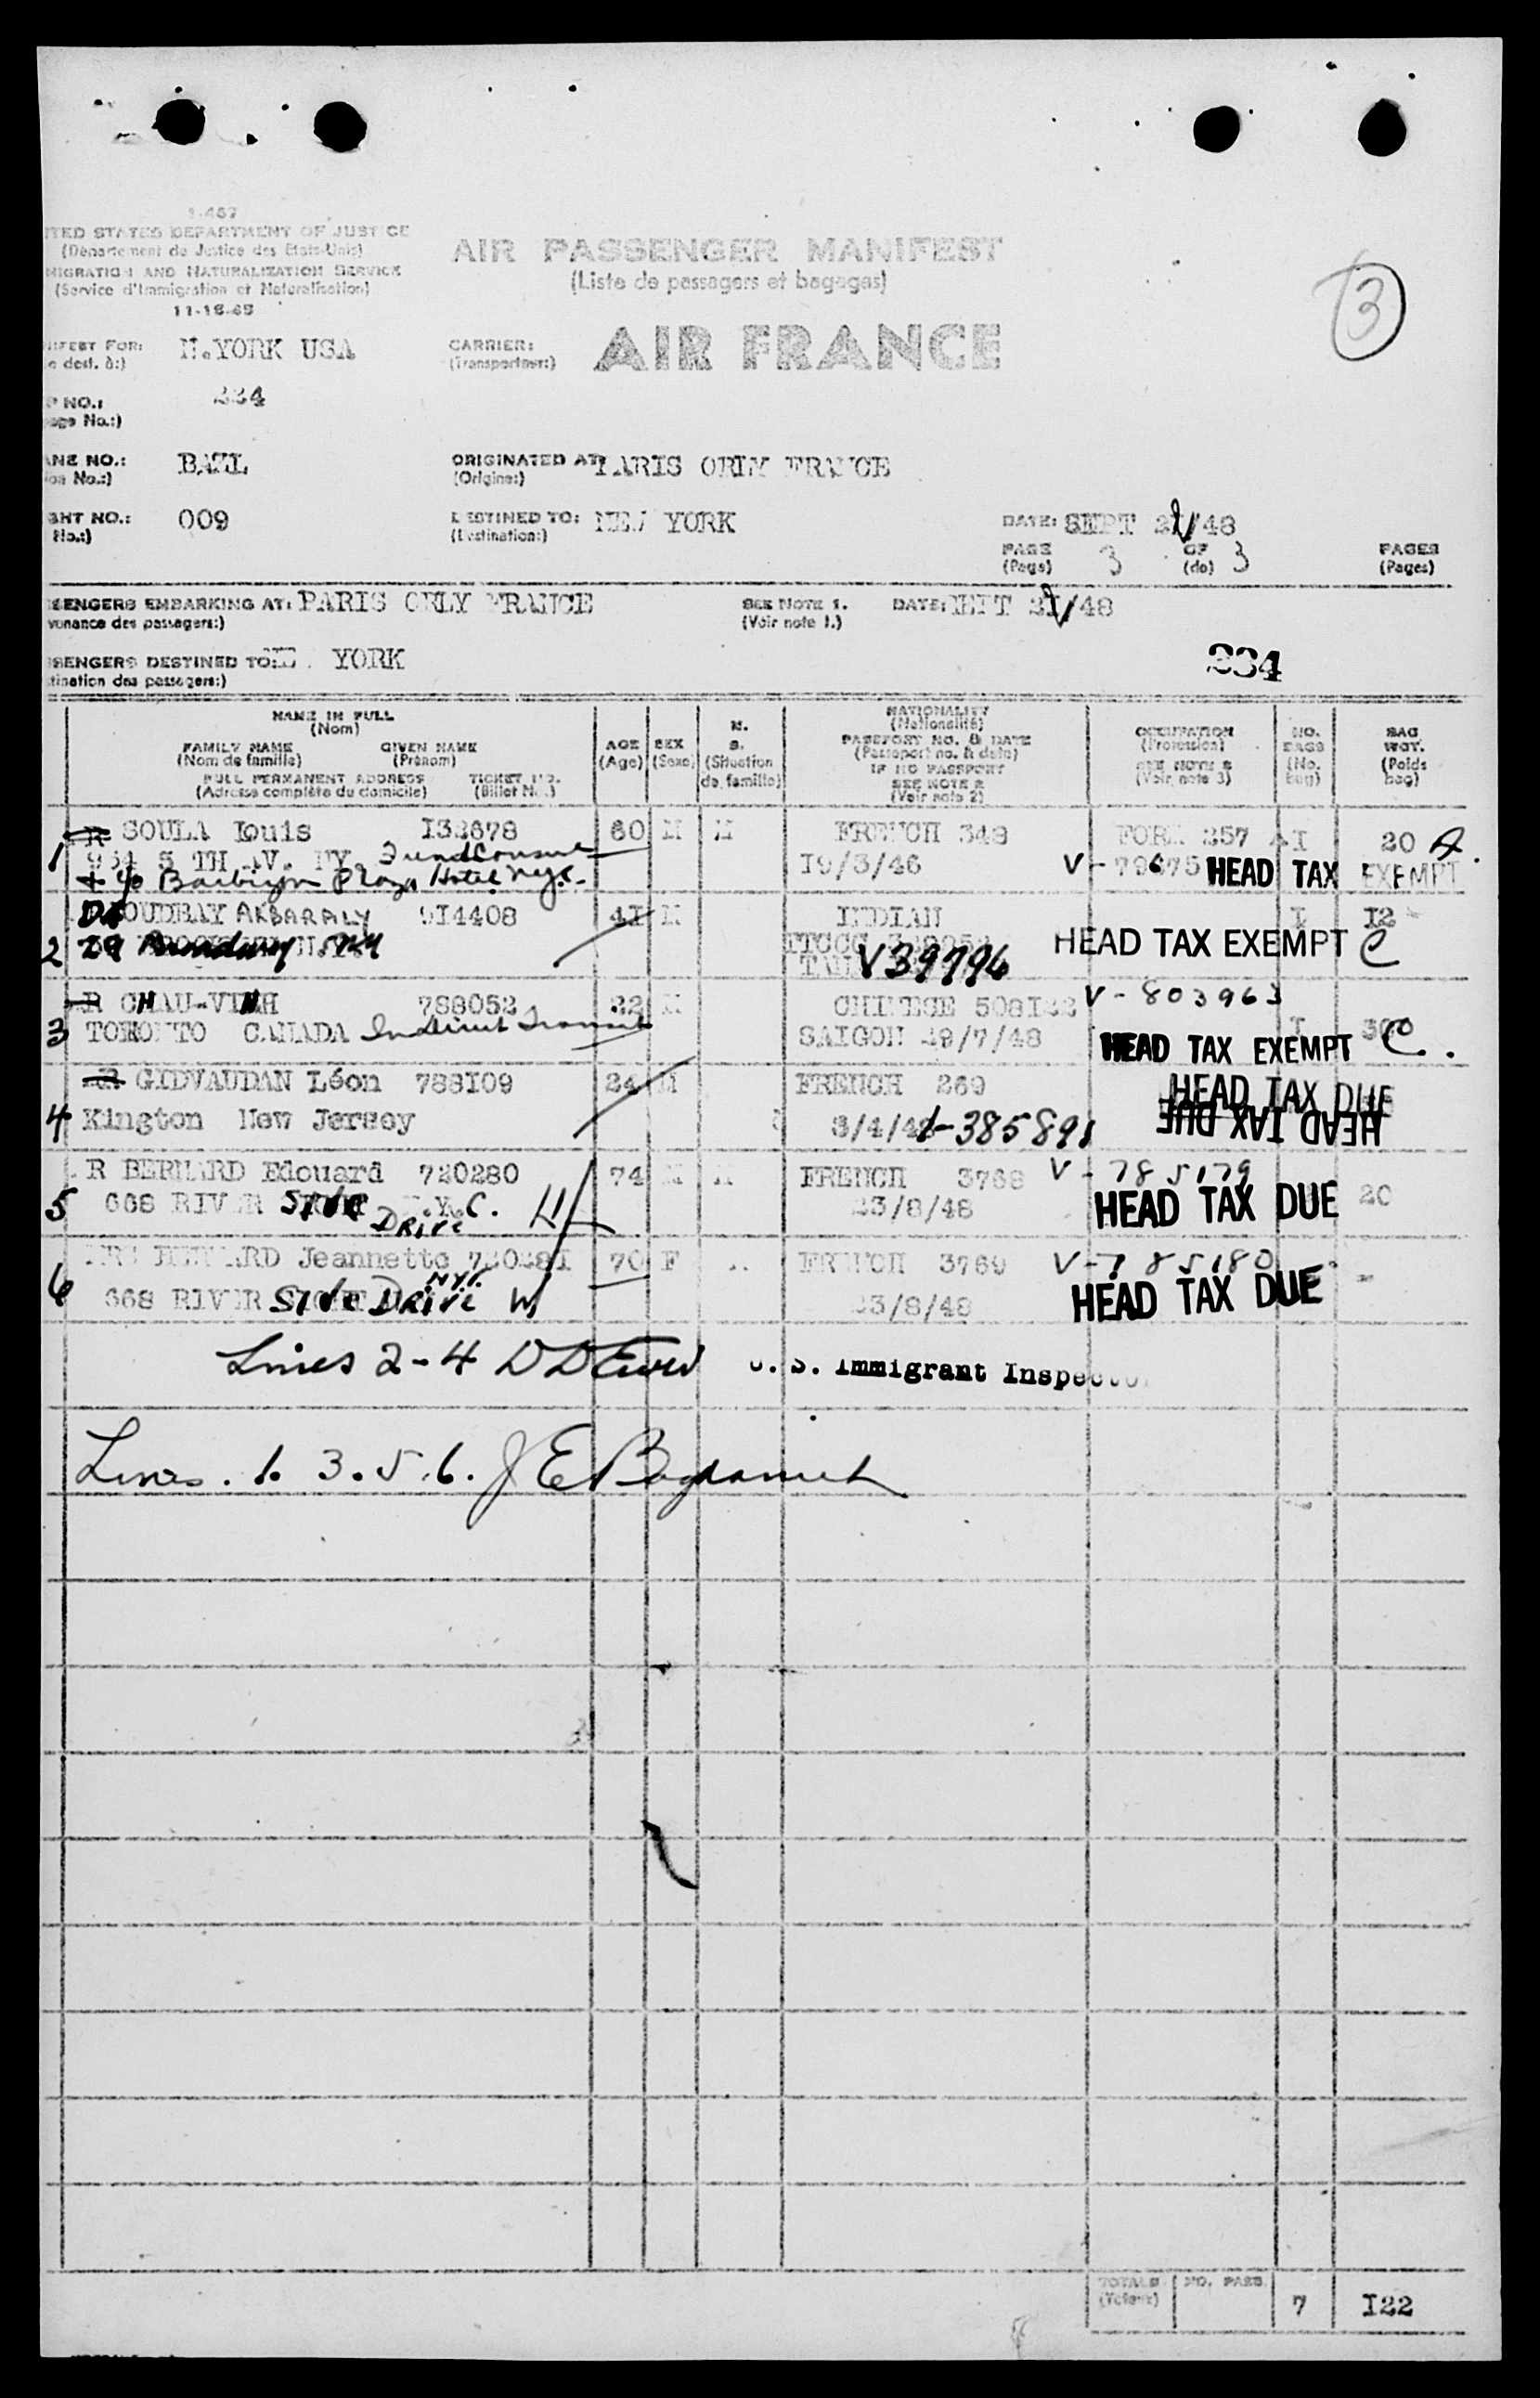 1-467
TED STATES DEPARTMENT OF JUSTICE
(Département de Justice des Etats-Unis)
MIGRATION AND NATURALIZATION SERVICE
(Service d'Immigration et Naturalisation)
AIR PASSENGER MANIFEST
(Liste de passagers et bagages)
3
IFEST FOR: N.YORK USA
e dest. à:)
CARRIER: AIR FRANCE
(Transporteur:)
NO.: 334
age No.:)
ANE NO.: BAZL
ion No.:)
ORIGINATED AT: PARIS ORLY FRANCE
(Origine:)
GHT NO.: 009
No.:)
DESTINED TO: NEW YORK
(Destination:)
DATE: SEPT /48
PAGE 3 OF 3 PAGES
(Page) (de) (Pages)
SENGERS EMBARKING AT: PARIS ORLY FRANCE
venance des passagers:)
SEE NOTE 1.
(Voir note 1.)
DATE: SEPT /48
SENGERS DESTINED TO: YORK
tination des passagers:)
334
NAME IN FULL
(Nom)
FAMILY NAME GIVEN NAME
(Nom de famille) (Prénom)
FULL PERMANENT ADDRESS TICKET NO.
(Adresse complète du domicile) (Billet No.)
AGE
(Age)
SEX
(Sexe)
M.
S.
(Situation
de famille)
NATIONALITY
(Nationalité)
PASSPORT NO. & DATE
(Passeport no. & date)
IF NO PASSPORT
SEE NOTE 2
(Voir note 2)
OCCUPATION
(Profession)
SEE NOTE 3
(Voir note 3)
NO.
BAGS
(No.
bag)
BAG
WGT.
(Poids
bag)
1 R SOULA Louis I32678 60 M M FRENCH 348 FORM 257 A I 20 A.
934 5 TH AV. NY. 19/3/46 V-79675 HEAD TAX EXEMPT
+ c/o Barbizon Plaza Hotel nyc.
2 OUDRAY AKBARALY 914408 41 M INDIAN I 12
V39796 HEAD TAX EXEMPT C
3 R CHAU-VINH 788052 22 M CHINESE 508122 V-803963
TORONTO CANADA In Direct Transit SAIGON 29/7/48 I HEAD TAX EXEMPT C.
4 GIDVAUDAN Léon 788109 24 M FRENCH 269 HEAD TAX DUE
Kington New Jersey 3/4/48 385891 HEAD TAX DUE
5 R BERNARD Edouard 720280 74 M M FRENCH 3768 V-785179
668 RIVER SIDE DRIVE N.Y.C. 23/8/48 HEAD TAX DUE 20
6 BERNARD Jeannette 720281 70 F FRENCH 3769 V-785180
668 RIVER SIDE DRIVE NYC. 23/8/48 HEAD TAX DUE
Lines 2-4 U. S. Immigrant Inspector
Lines. 1. 3. 5. 6.
TOTALS NO. PASS. 7 I22
(Totaux)